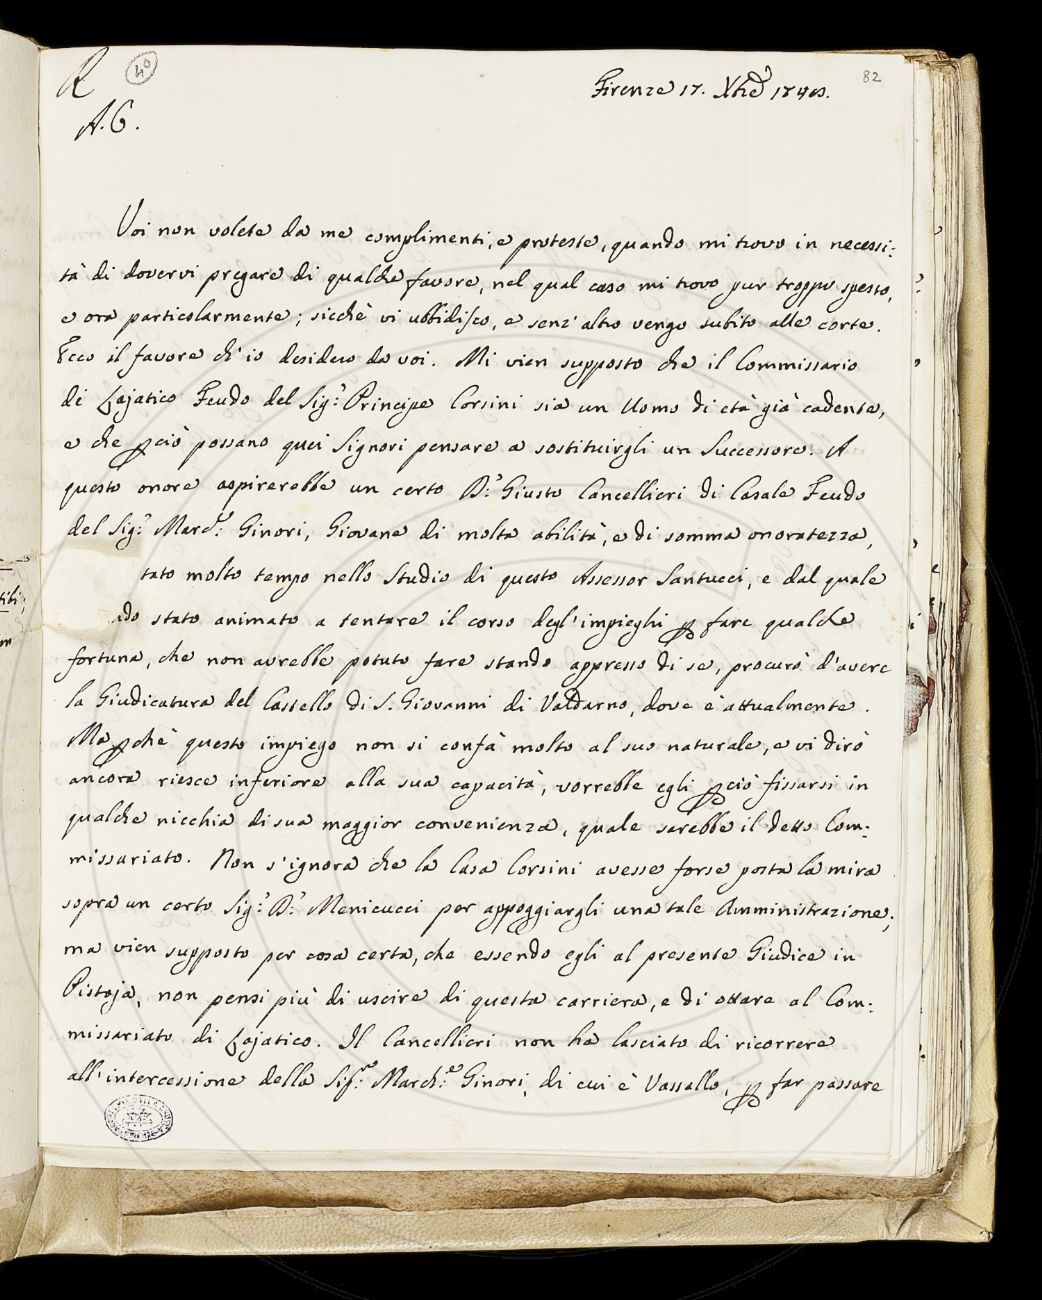 R
40
82
A. C.
Firenze 17. Xbre
Voi non volete da me complimenti, e proteste, quando mi trovo in necessi:
tà di dovervi pregare di qualche favore, nel qual caso mi trovo pur troppo spesso,
e ora particolarmente; sicchè vi ubbidisco, e senz' altro vengo subito alle corte.
Ecco il favore ch' io desidero da voi. Mi vien supposto che il Commissario
di Lajatico Feudo del Sig.r Principe Corsini sia un Uomo di età già cadente,
e che pciò possano quei Signori pensare a sostituirgli un Successore. A
questo onore aspirerebbe un certo D.r Giusto Cancellieri di Casale Feudo
del Sig.r March.e Ginori, Giovane di molta abilità, e di somma onoratezza,
tato molto tempo nello Studio di questo Assessor Santucci, e dal quale
ndo stato animato a tentare il corso degl' impieghi p fare qualche
fortuna, che non avrebbe potuto fare stando appresso di se, procurò d'avere
la Giudicatura del Castello di S. Giovanni di Valdarno, dove è attualmente.
Ma pchè questo impiego non si confà molto al suo naturale, e vi dirò
ancora riesce inferiore alla sua capacità, vorrebbe egli pciò fissarsi in
qualche nicchia di sua maggior convenienza, quale sarebbe il detto Com:
missariato. Non s'ignora che la Casa Corsini avesse forse posta la mira
sopra un certo Sig.r D.r Menicucci per appoggiargli una tale Amministrazione;
ma vien supposto per cosa certa, che essendo egli al presente Giudice in
Pistoja, non pensi più di uscire di questa carriera, e di ottare al Com:
missariato di Lajatico. Il Cancellieri non ha lasciato di ricorrere
all' intercessione della Sig.ra March.a Ginori, di cui è Vassallo, p far passare